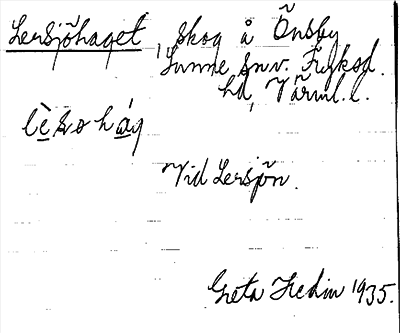 Lersjöhaget, skog å Önsby
Sunne sn. v. Fryksd.
hd, Värml. l.
lèsohág
Vid Lersjön.
Greta Hedin 1935.